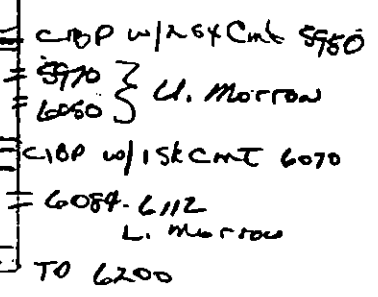 CIBP w/2 sx Cmt 5950
5970
6050 } U. Morrow
CIBP w/1 sk CMT 6070
6084-6112
L. Morrow
TD 6200